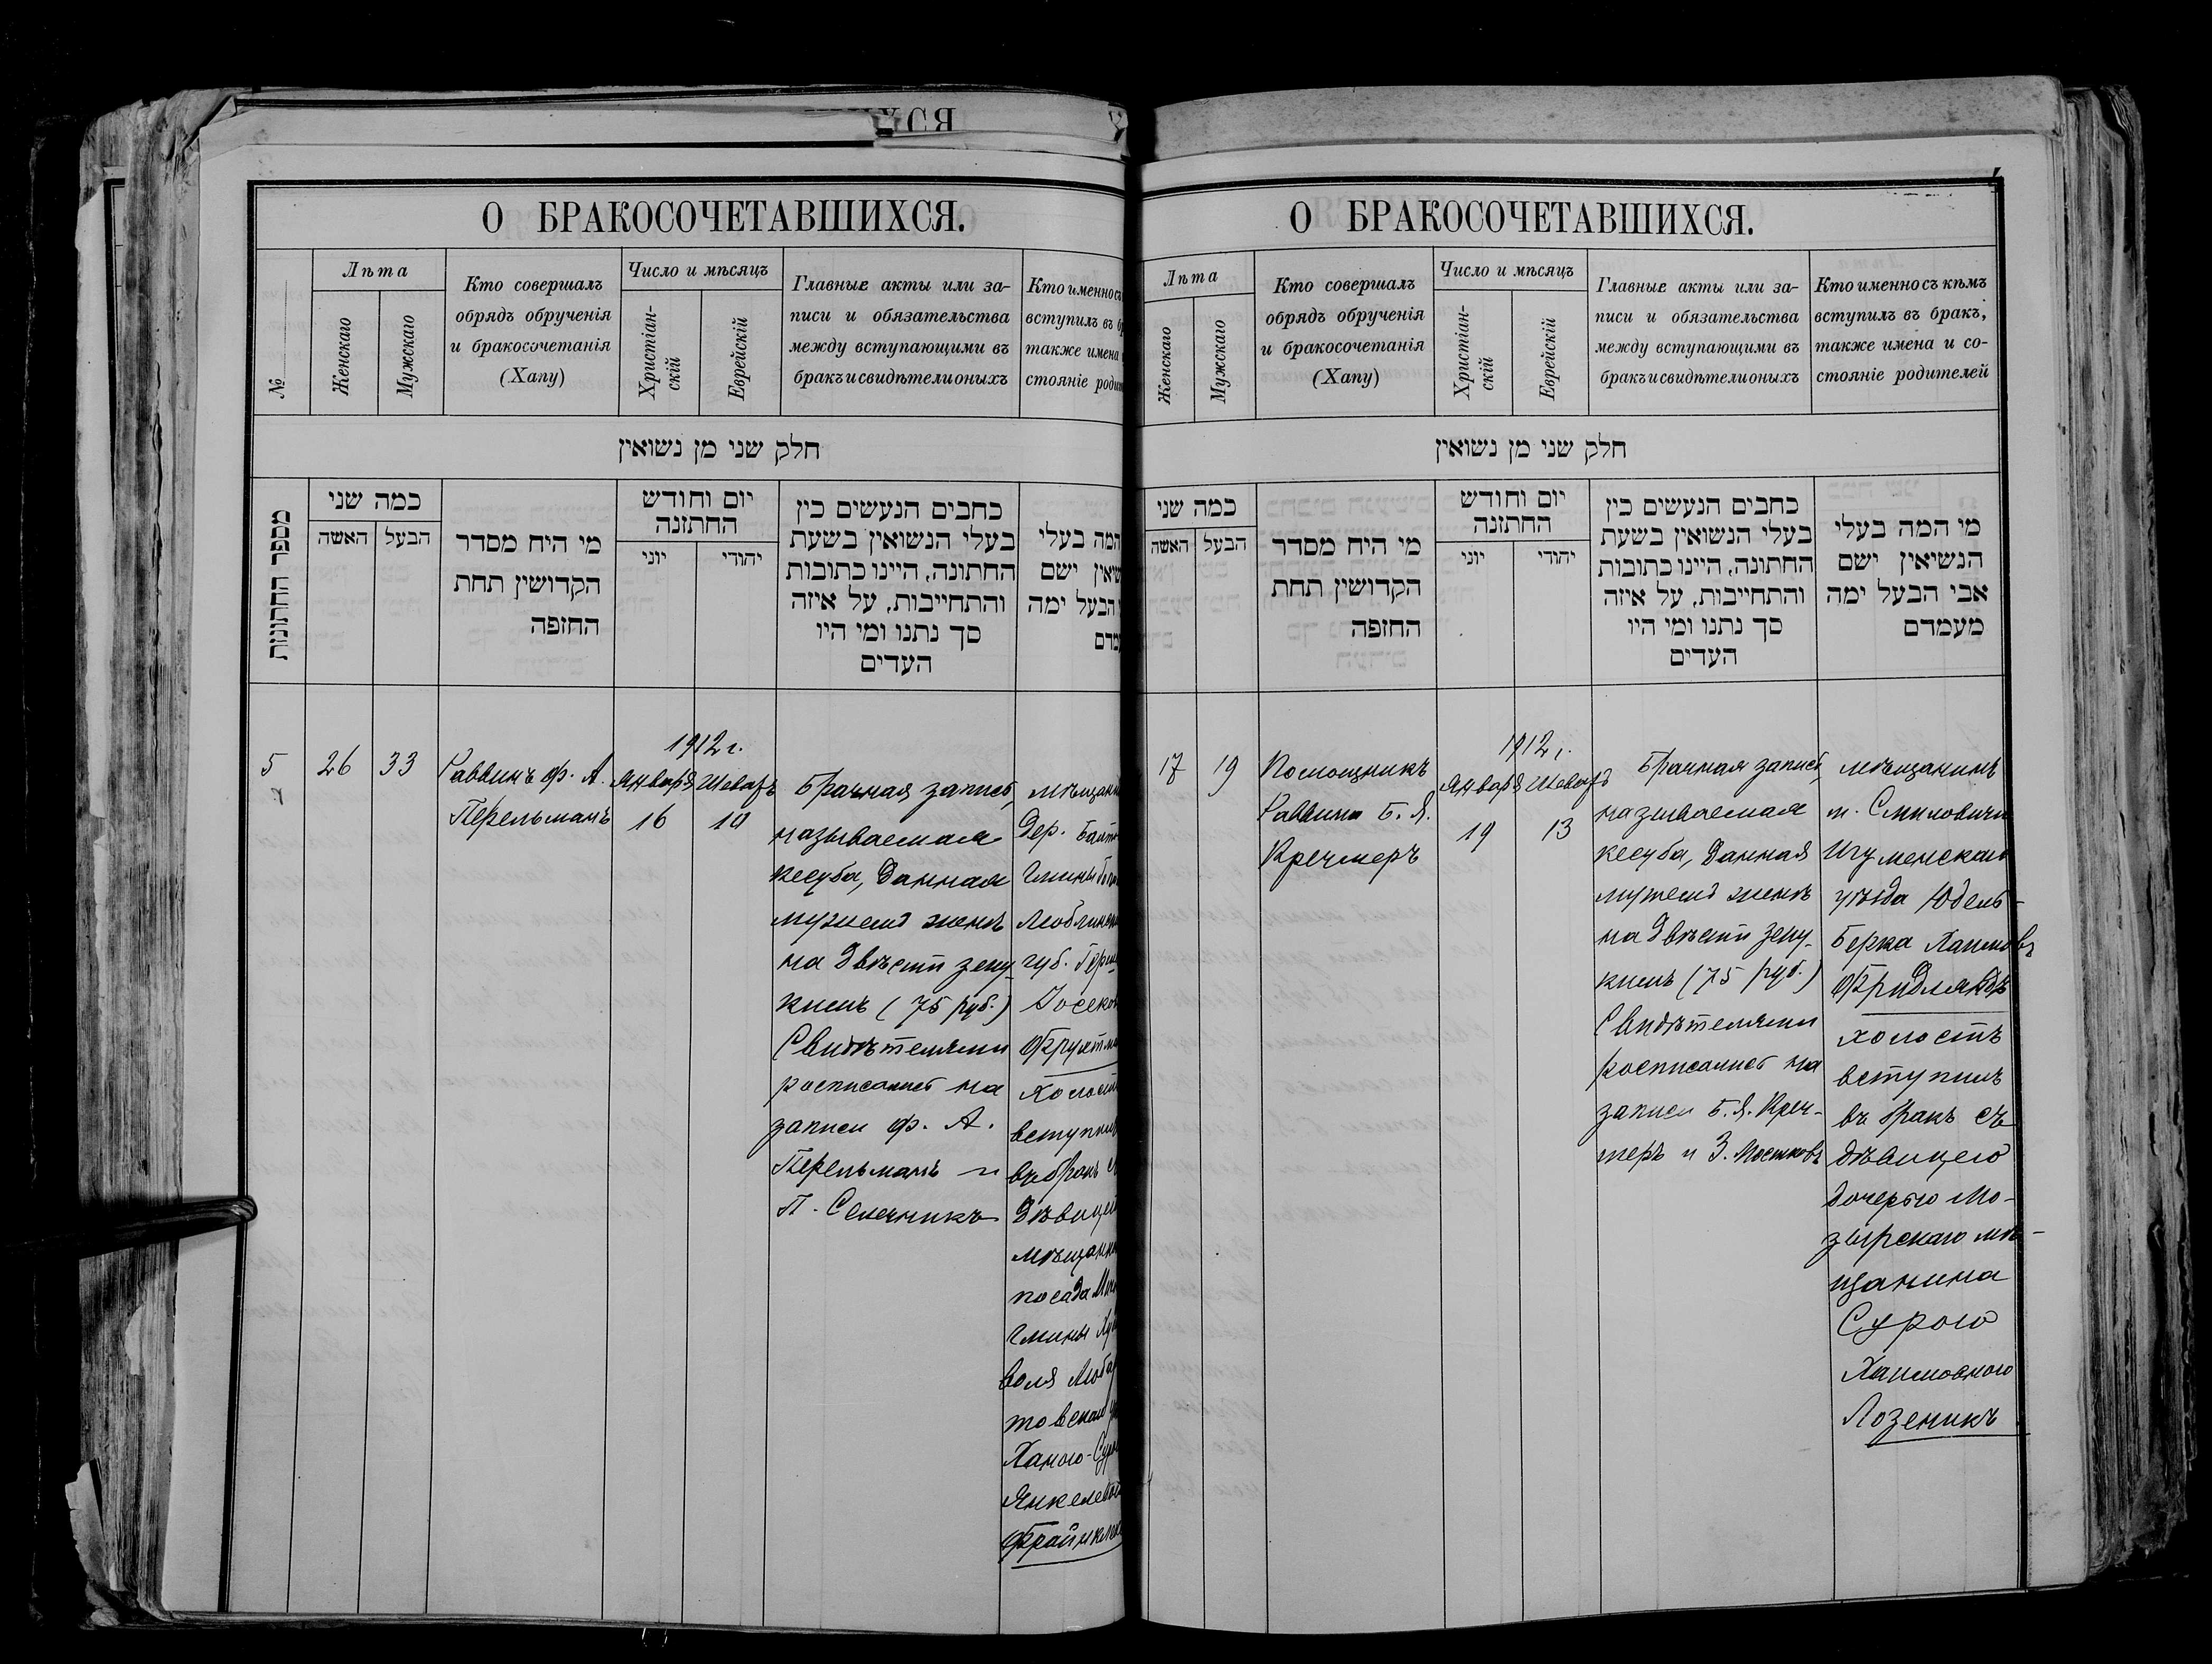 О БРАКОСОЧЕТАВШИХСЯ.
№
Лѣта
Женскаго
Мужскаго
Кто совершалъ
обрядъ обрученія
и бракосочетанія
(Хапу)
Число и мѣсяцъ
Христіан-
скій
Еврейскій
Главные акты или за-
писи и обязательства
между вступающими въ
бракъ и свидѣтели оныхъ
Кто именно съ
вступилъ въ
также имена
стояніе
חלק שני מן נשואין
מספר החתונות
כמה שני
האשה
הבעל
מי היח מסדר
הקדושין תחת
החופה
יום וחודש
החתונה
יוני
יהודי
כחבים הנעשים כין
בעלי הנשואין בשעת
החתונה, היינו כתובות
והתחייבות, על איזה
סך נתנו ומי היו
העדים
המה בעלי
ישם
הבעל ימה
5
26
33
Раввинъ Ф. А.
Перельманъ
1912 г.
Января Шеватъ
16
10
Брачная запись,
называемая
кесуба, данная
мужемъ женѣ
на двѣсти зеху-
кимъ (75 руб.)
Свидѣтелями
росписались на
записи Ф. А.
Перельманъ и
П. Селечникъ
Дер.
гмины
губ.
вступилъ
въ бракъ
посада
гмины
воля
Ханою-
О БРАКОСОЧЕТАВШИХСЯ.
Лѣта
Женскаго
Мужскаго
Кто совершалъ
обрядъ обрученія
и бракосочетанія
(Хапу)
Число и мѣсяцъ
Христіан-
скій
Еврейскій
Главные акты или за-
писи и обязательства
между вступающими въ
бракъ и свидѣтели оныхъ
Кто именно съ кѣмъ
вступилъ въ бракъ,
также имена и со-
стояніе родителей
חלק שני מן נשואין
כמה שני
האשה
הבעל
מי היח מסדר
הקדושין תחת
החופה
יום וחודש
החתונה
יוני
יהודי
כחבים הנעשים כין
בעלי הנשואין בשעת
החתונה, היינו כתובות
והתחייבות, על איזה
סך נתנו ומי היו
העדים
מי המה בעלי
הנשיאין ישם
אבי הבעל ימה
מעמדם
17
19
Помощникъ
Раввина Б. Я.
Кречмеръ
1912 г.
Января Шеватъ
19
13
Брачная запись,
называемая
кесуба, данная
мужемъ женѣ
на двѣсти зеху-
кимъ (75 руб.)
Свидѣтелями
росписались на
записи Б. Я. Креч-
меръ и З. Мостковъ
мѣщанинъ
м. Смиловичи
Игуменскаго
уѣзда Юдель-
Берка Хаимовъ
Фридляндъ
холостъ
вступилъ
въ бракъ съ
дѣвицею
дочерью Мо-
зырскаго мѣ-
щанина
Сурою
Хаимовною
Лозеникъ